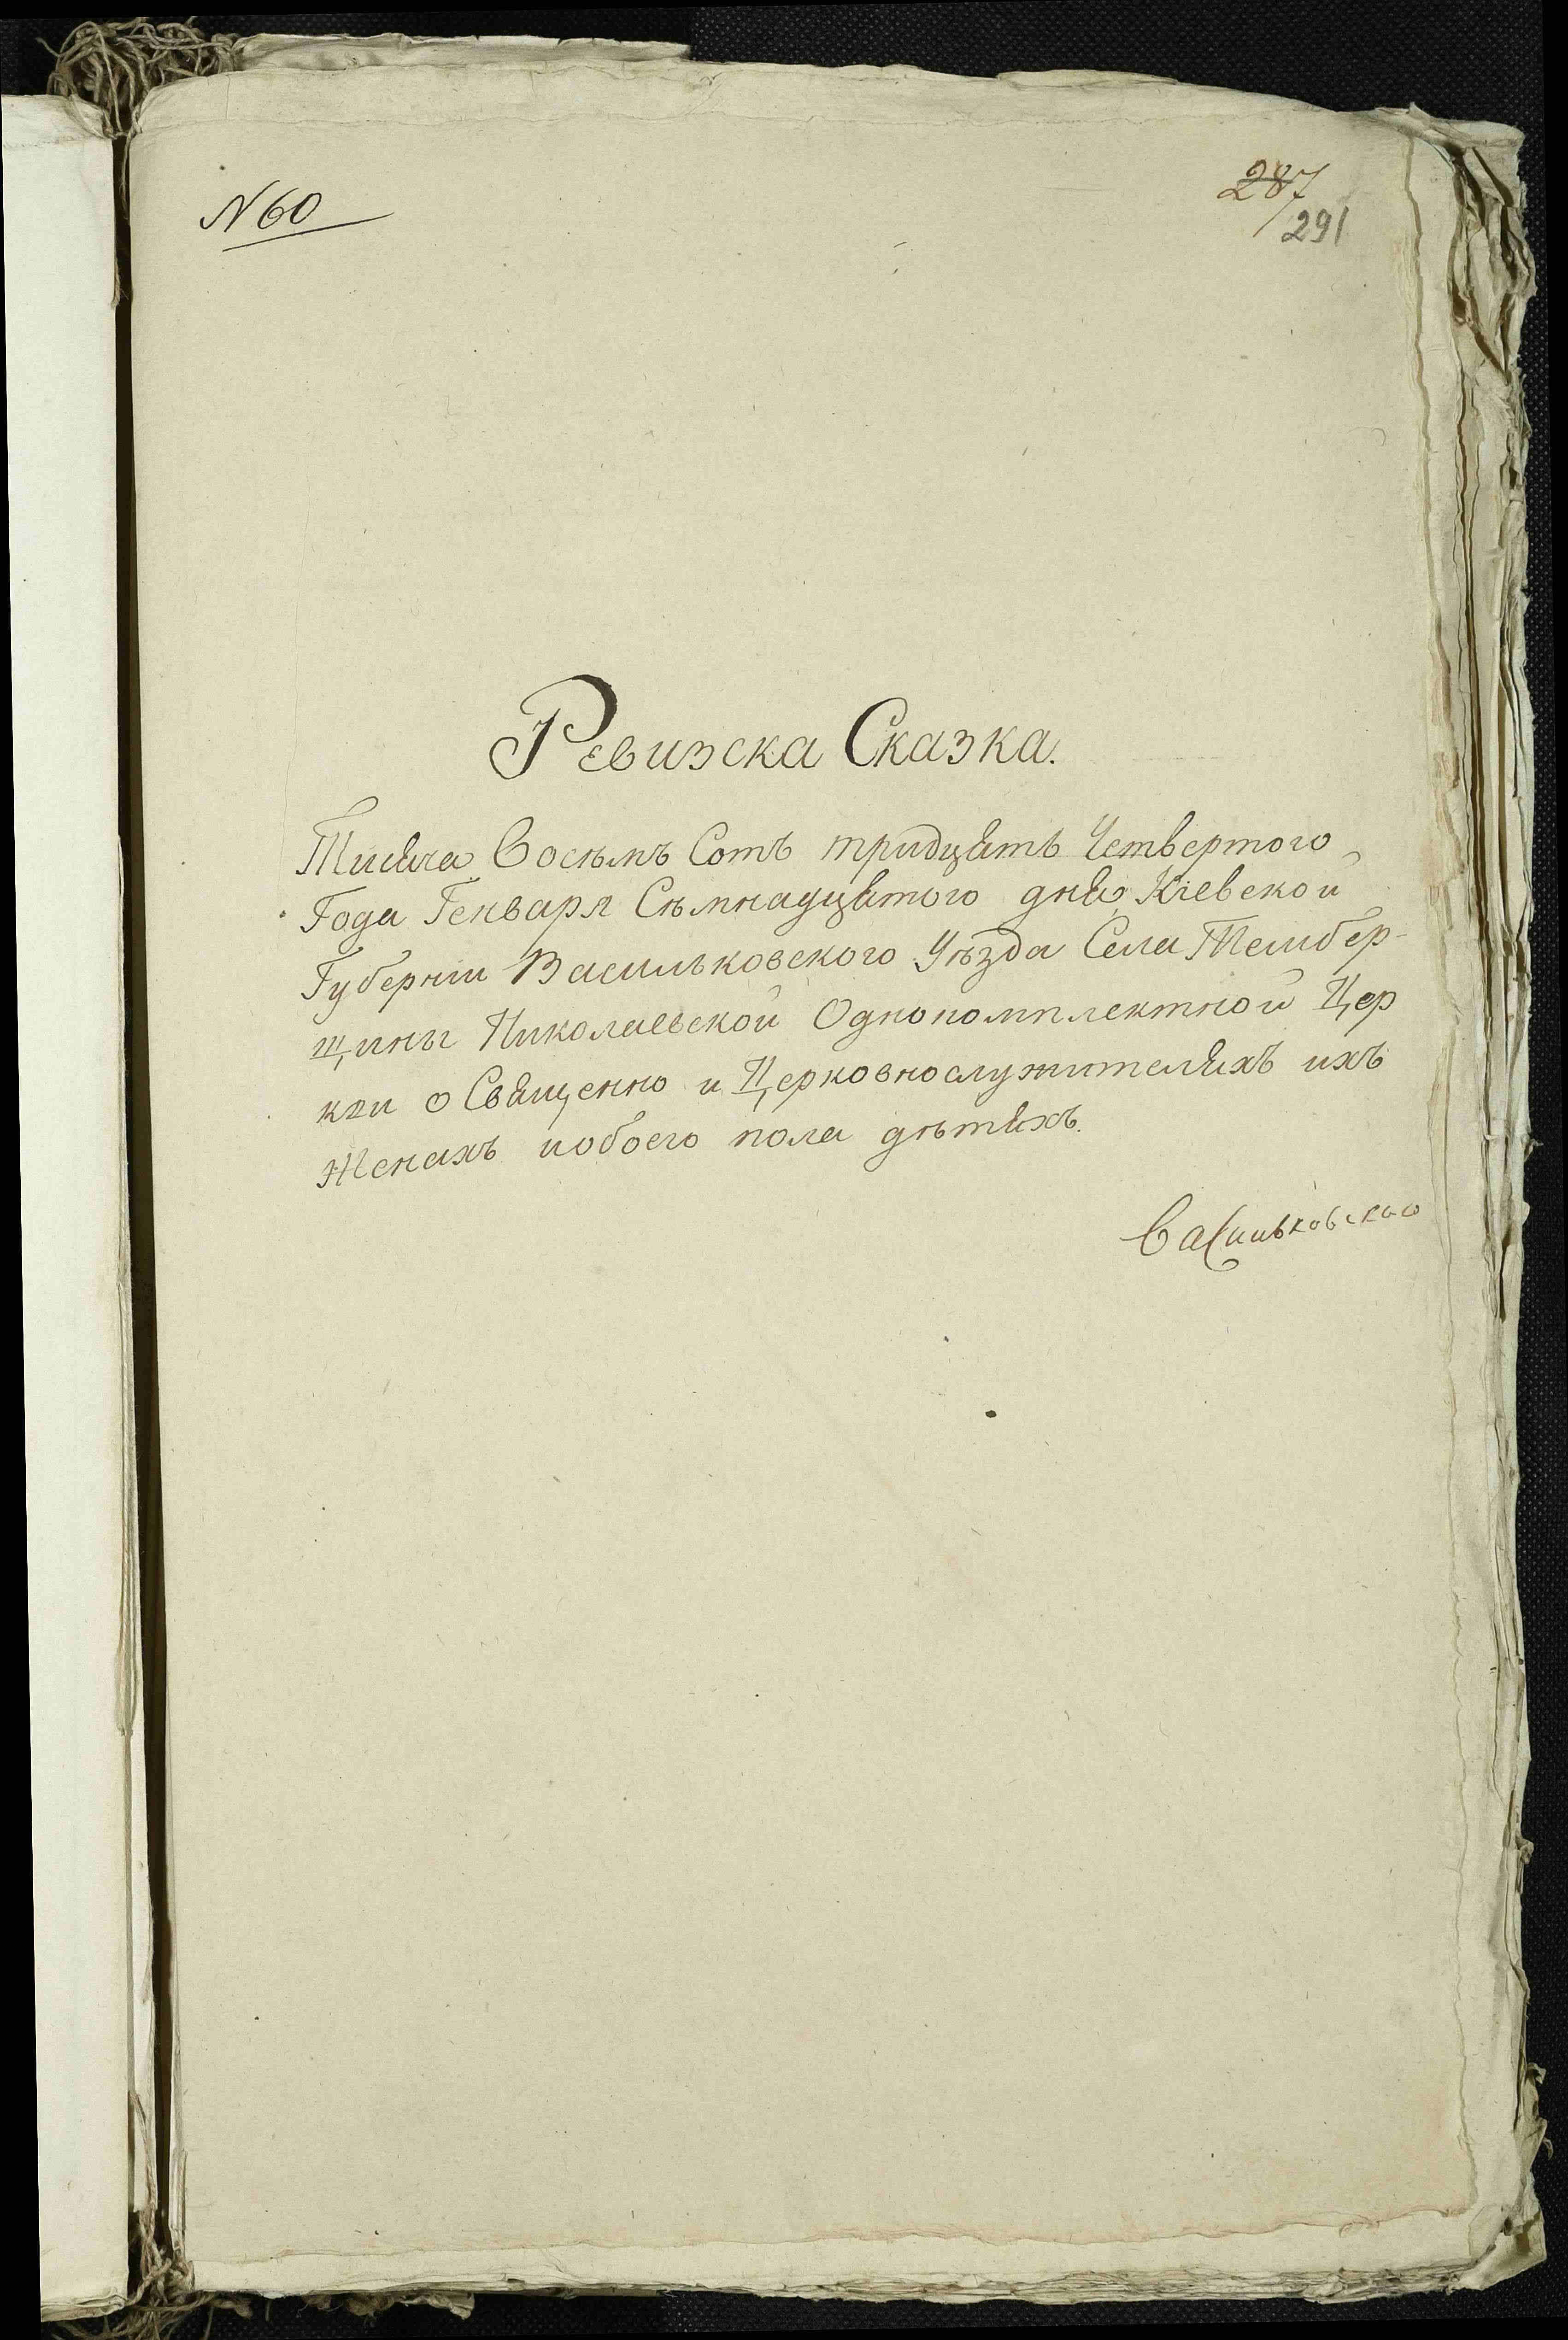 N 60
287
291
Ревизска Сказка.
Тисяча Восѣмъ Сотъ тридцять Четвертого
Года Генваря Сѣмнадцятого дня Кіевской
Губерніи Васильковского Уѣзда Села Тембер-
щины Николаевской Однокомплектной Цер
кви о Священно и Церковнослужителяхъ ихъ
Женахъ иобоего пола дѣтяхъ.
Васильковскаго